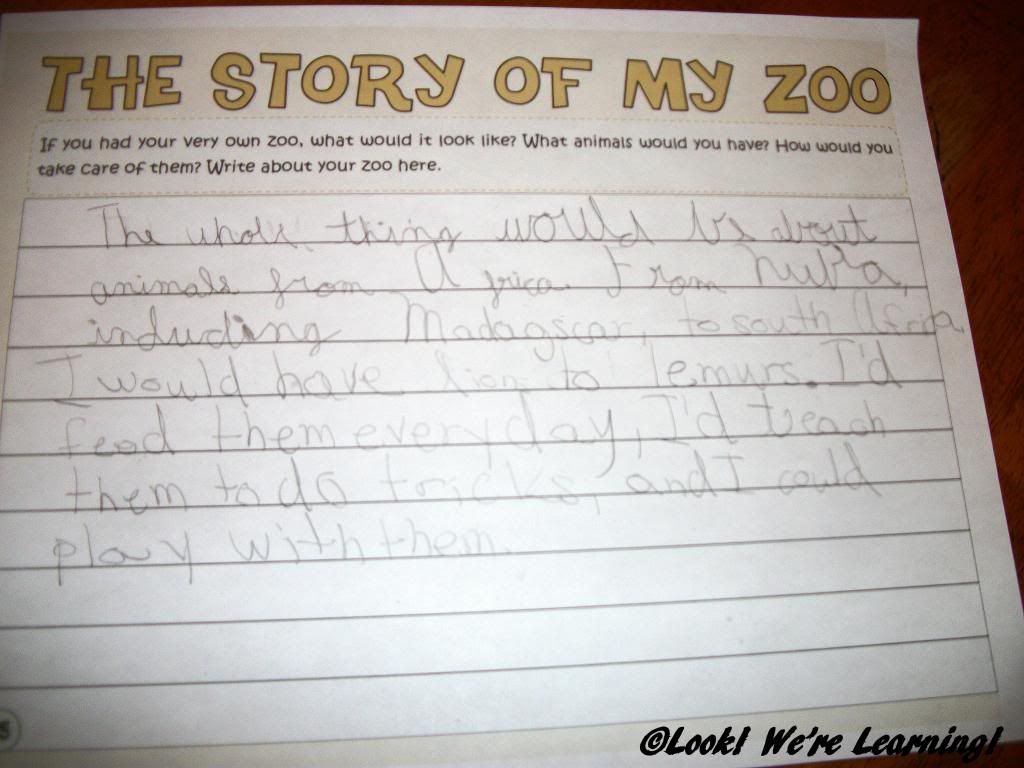 THE STORY OF MY ZOO
If you had your very own zoo, what would it look like? What animals would you have? How would you
take care of them? Write about your zoo here.
The whole thing would be about
animals from Africa From
including Madagascar, to south Africa
I would have lion to lemurs. I'd
feed them everyday, I'd teach
them to do tricks, and I could
play with them.
5
©Look! We're Learning!